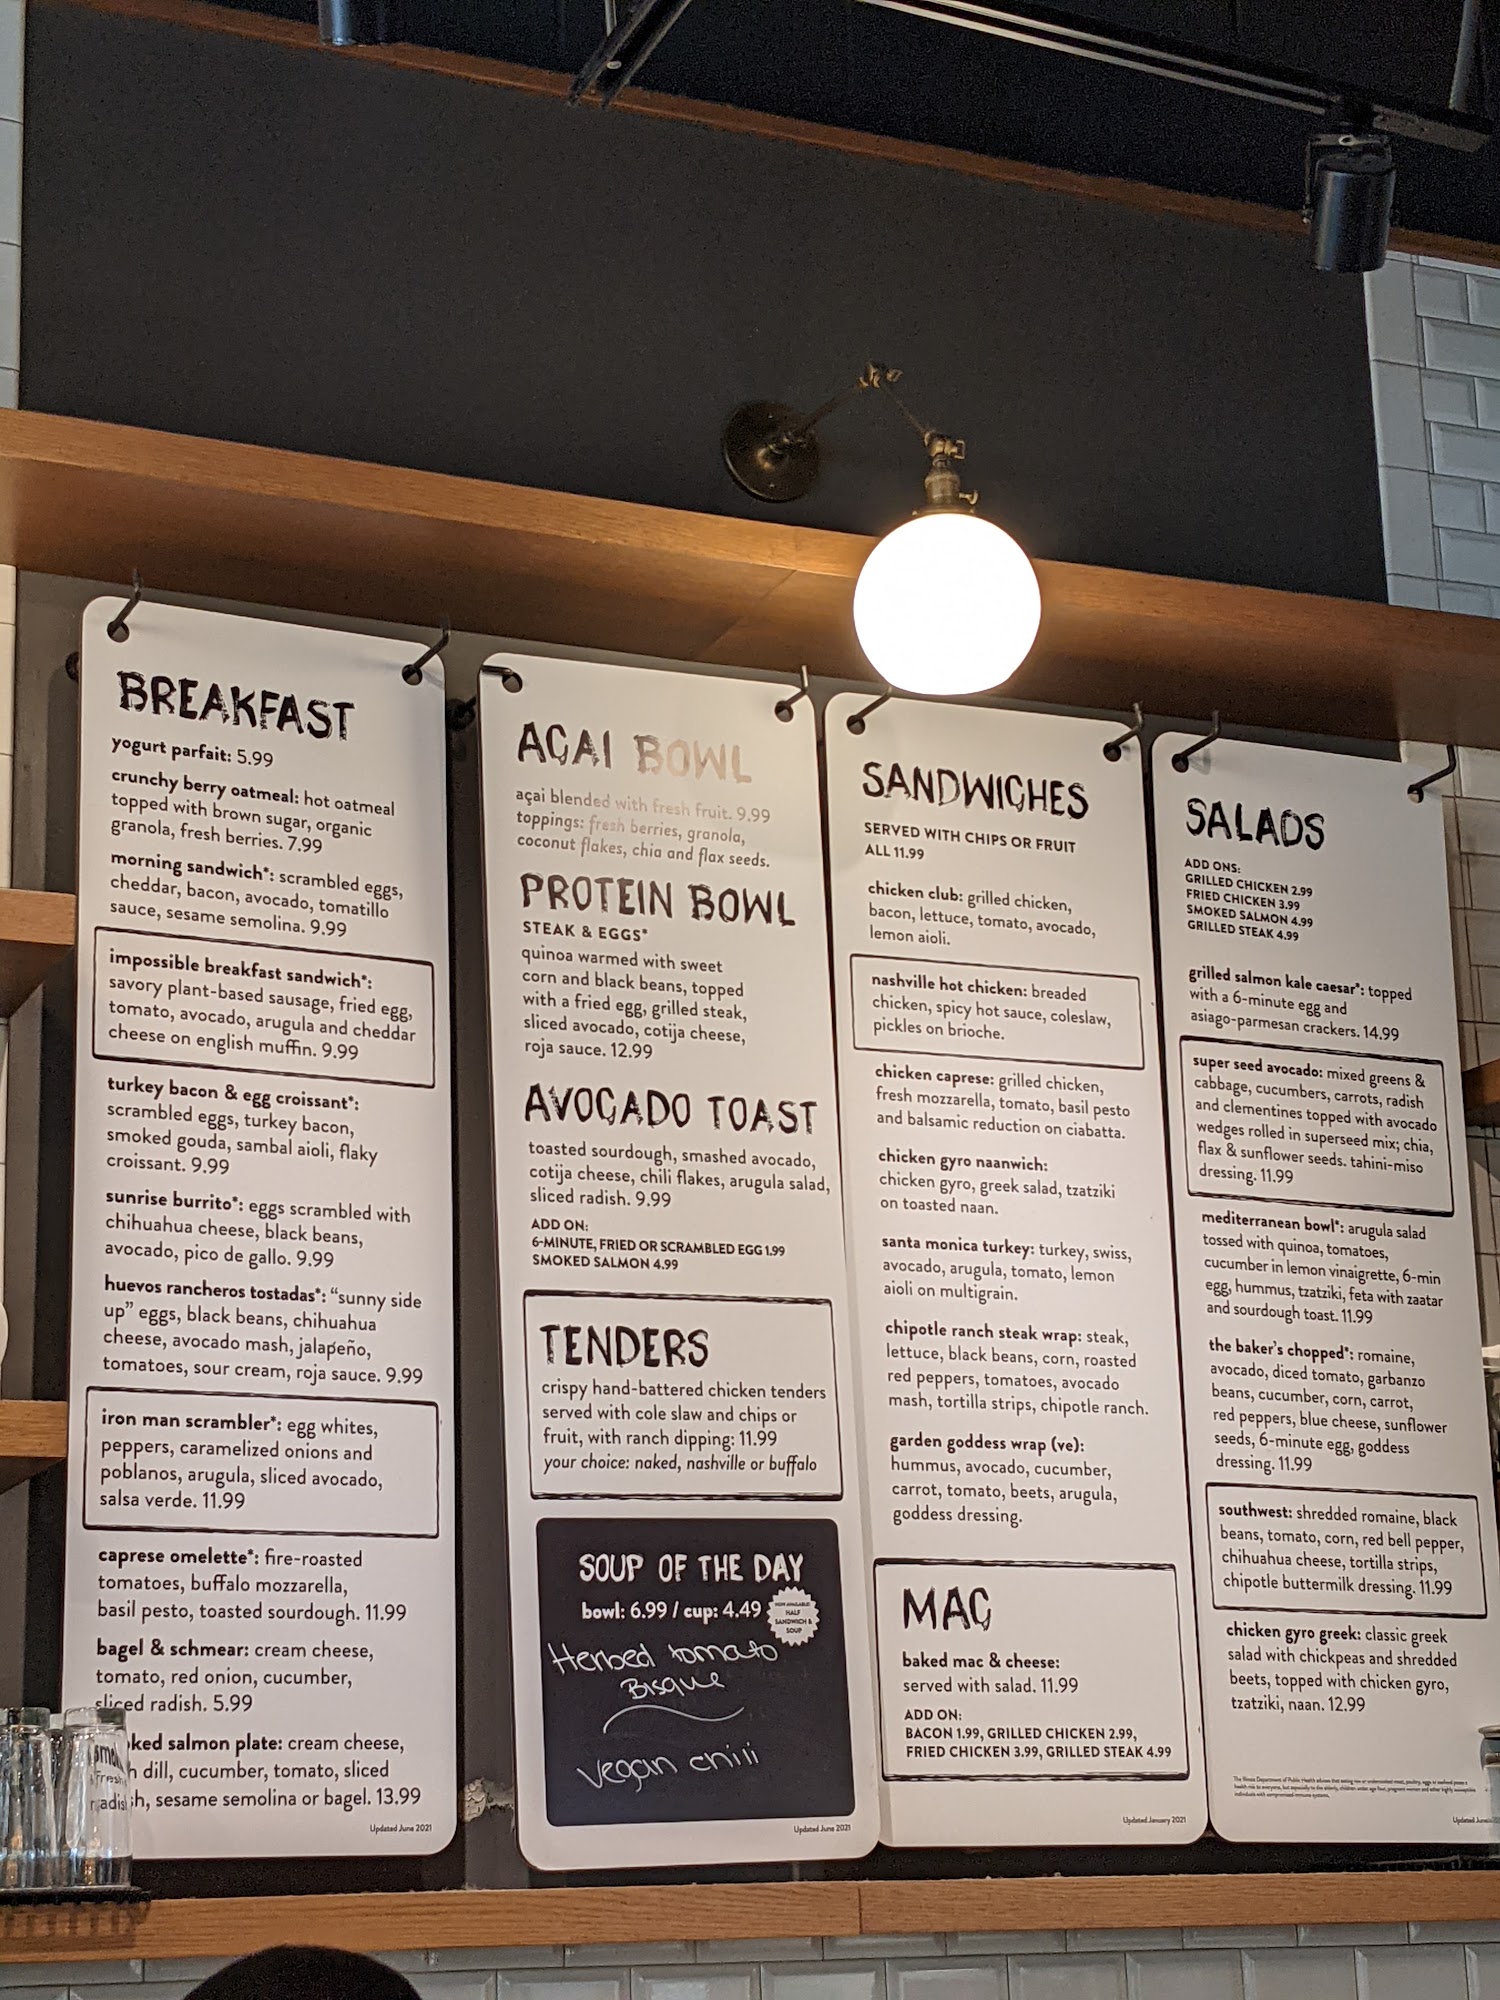 BREAKFAST
yogurt parfait: 5.99
crunchy berry oatmeal: hot oatmeal
topped with brown sugar, organic
granola, fresh berries. 7.99
morning sandwich*: scrambled eggs,
cheddar, bacon, avocado, tomatillo
sauce, sesame semolina. 9.99
impossible breakfast sandwich*:
savory plant-based sausage, fried egg,
tomato, avocado, arugula and cheddar
cheese on english muffin. 9.99
turkey bacon & egg croissant*:
scrambled eggs, turkey bacon,
smoked gouda, sambal aioli, flaky
croissant. 9.99
sunrise burrito*: eggs scrambled with
chihuahua cheese, black beans,
avocado, pico de gallo. 9.99
huevos rancheros tostadas*: "sunny side
up" eggs, black beans, chihuahua
cheese, avocado mash, jalapeño,
tomatoes, sour cream, roja sauce. 9.99
iron man scrambler*: egg whites,
peppers, caramelized onions and
poblanos, arugula, sliced avocado,
salsa verde. 11.99
caprese omelette*: fire-roasted
tomatoes, buffalo mozzarella,
basil pesto, toasted sourdough. 11.99
bagel & schmear: cream cheese,
tomato, red onion, cucumber,
sliced radish. 5.99
salmon plate: cream cheese,
dill, cucumber, tomato, sliced
sesame semolina or bagel. 13.99
Updated June 2021
AÇAI BOWL
açai blended with fresh fruit. 9.99
toppings: fresh berries, granola,
coconut flakes, chia and flax seeds.
PROTEIN BOWL
STEAK & EGGS*
quinoa warmed with sweet
corn and black beans, topped
with a fried egg, grilled steak,
sliced avocado, cotija cheese,
roja sauce. 12.99
AVOCADO TOAST
toasted sourdough, smashed avocado,
cotija cheese, chili flakes, arugula salad,
sliced radish. 9.99
ADD ON:
6-MINUTE, FRIED OR SCRAMBLED EGG 1.99
SMOKED SALMON 4.99
TENDERS
crispy hand-battered chicken tenders
served with cole slaw and chips or
fruit, with ranch dipping: 11.99
your choice: naked, nashville or buffalo
SOUP OF THE DAY
bowl: 6.99 / cup: 4.49
NOW AVAILABLE!
HALF
SANDWICH &
SOUP
Herbed tomato
Bisque
vegan chili
Updated June 2021
SANDWICHES
SERVED WITH CHIPS OR FRUIT
ALL 11.99
chicken club: grilled chicken,
bacon, lettuce, tomato, avocado,
lemon aioli.
nashville hot chicken: breaded
chicken, spicy hot sauce, coleslaw,
pickles on brioche.
chicken caprese: grilled chicken,
fresh mozzarella, tomato, basil pesto
and balsamic reduction on ciabatta.
chicken gyro naanwich:
chicken gyro, greek salad, tzatziki
on toasted naan.
santa monica turkey: turkey, swiss,
avocado, arugula, tomato, lemon
aioli on multigrain.
chipotle ranch steak wrap: steak,
lettuce, black beans, corn, roasted
red peppers, tomatoes, avocado
mash, tortilla strips, chipotle ranch.
garden goddess wrap (ve):
hummus, avocado, cucumber,
carrot, tomato, beets, arugula,
goddess dressing.
MAC
baked mac & cheese:
served with salad. 11.99
ADD ON:
BACON 1.99, GRILLED CHICKEN 2.99,
FRIED CHICKEN 3.99, GRILLED STEAK 4.99
Updated January 2021
SALADS
ADD ONS:
GRILLED CHICKEN 2.99
FRIED CHICKEN 3.99
SMOKED SALMON 4.99
GRILLED STEAK 4.99
grilled salmon kale caesar*: topped
with a 6-minute egg and
asiago-parmesan crackers. 14.99
super seed avocado: mixed greens &
cabbage, cucumbers, carrots, radish
and clementines topped with avocado
wedges rolled in superseed mix; chia,
flax & sunflower seeds. tahini-miso
dressing. 11.99
mediterranean bowl*: arugula salad
tossed with quinoa, tomatoes,
cucumber in lemon vinaigrette, 6-min
egg, hummus, tzatziki, feta with zaatar
and sourdough toast. 11.99
the baker's chopped*: romaine,
avocado, diced tomato, garbanzo
beans, cucumber, corn, carrot,
red peppers, blue cheese, sunflower
seeds, 6-minute egg, goddess
dressing. 11.99
southwest: shredded romaine, black
beans, tomato, corn, red bell pepper,
chihuahua cheese, tortilla strips,
chipotle buttermilk dressing. 11.99
chicken gyro greek: classic greek
salad with chickpeas and shredded
beets, topped with chicken gyro,
tzatziki, naan. 12.99
Updated June